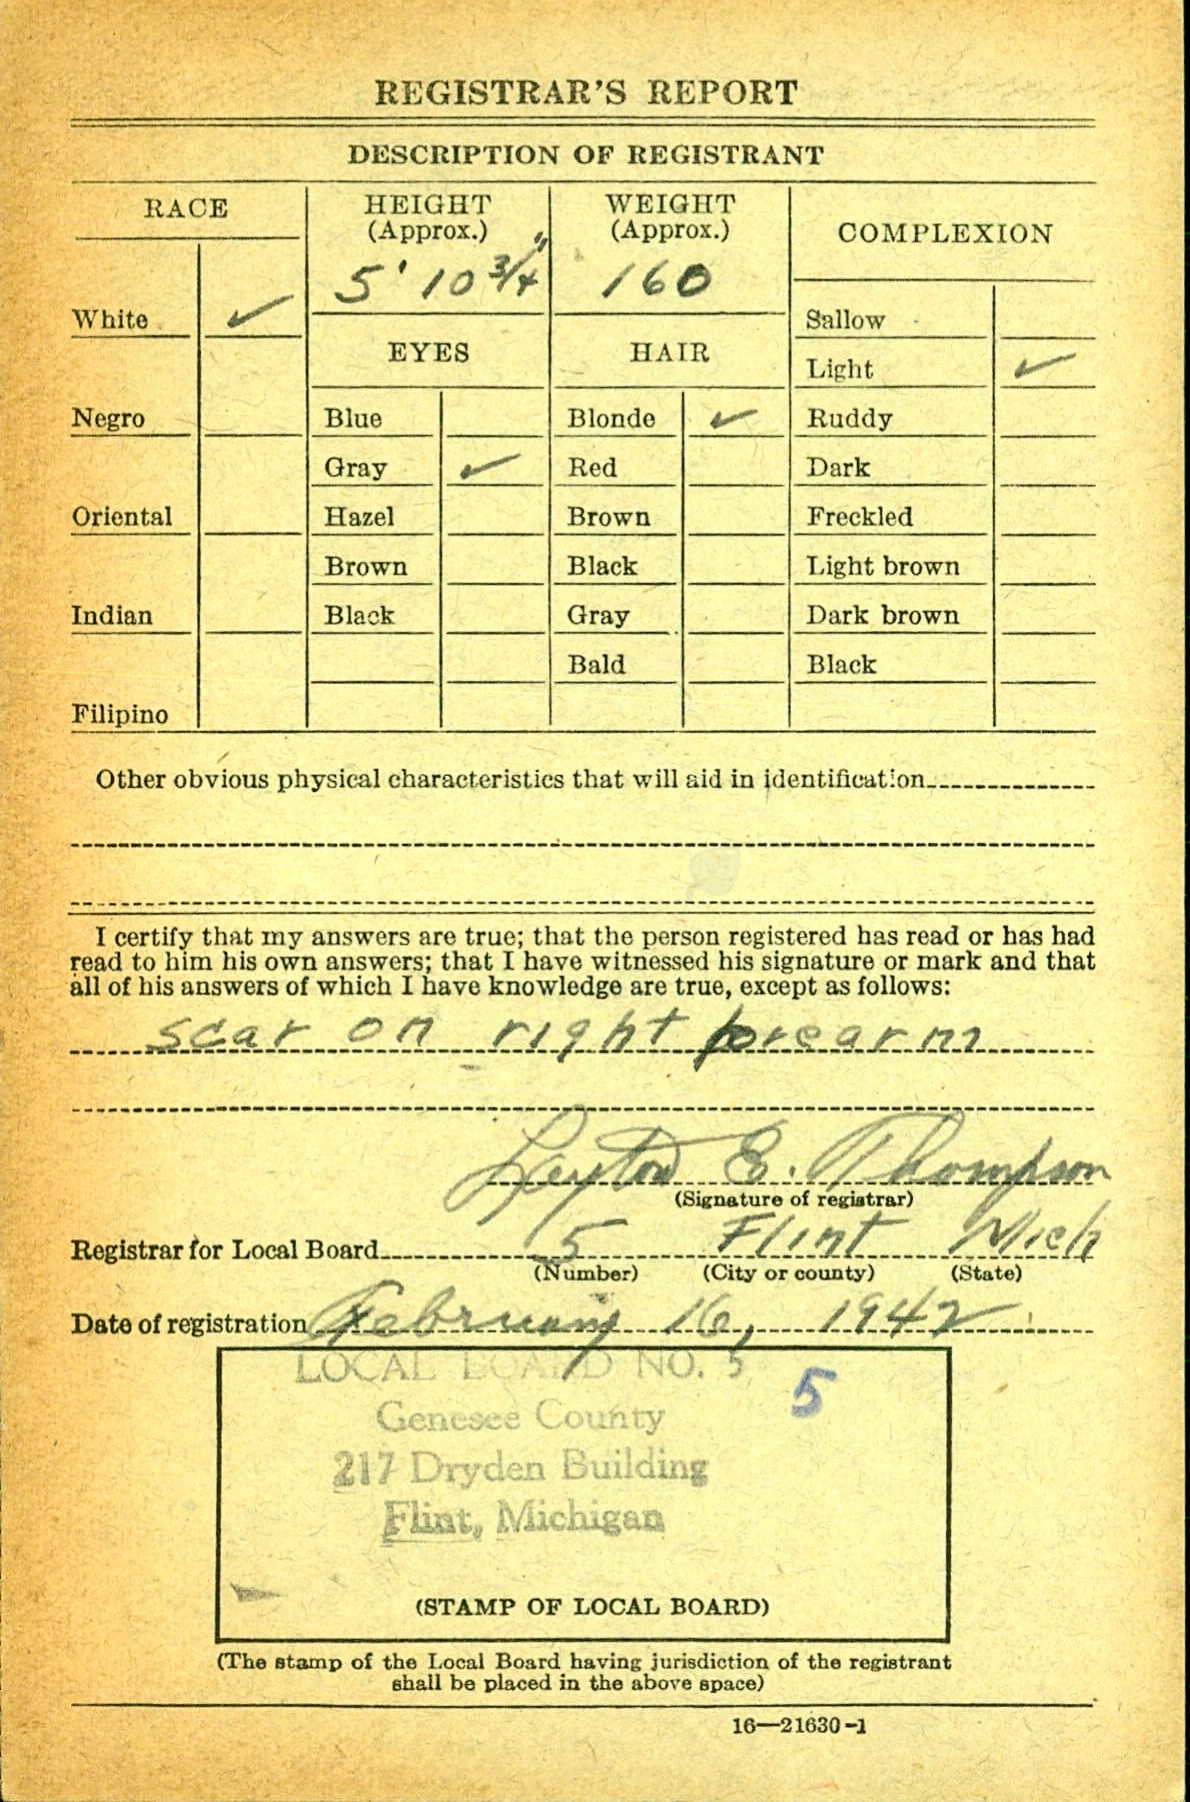 REGISTRAR'S REPORT
DESCRIPTION OF REGISTRANT
RACE
White ✓
Negro
Oriental
Indian
Filipino
HEIGHT
(Approx.)
5' 10 3/4"
WEIGHT
(Approx.)
160
EYES
Blue
Gray ✓
Hazel
Brown
Black
HAIR
Blonde ✓
Red
Brown
Black
Gray
Bald
COMPLEXION
Sallow
Light ✓
Ruddy
Dark
Freckled
Light brown
Dark brown
Black
Other obvious physical characteristics that will aid in identification
I certify that my answers are true; that the person registered has read or has had
read to him his own answers; that I have witnessed his signature or mark and that
all of his answers of which I have knowledge are true, except as follows:
scar on right forearm
Leyton E. Thompson
(Signature of registrar)
Registrar for Local Board 5 Flint Mich
(Number) (City or county) (State)
Date of registration February 16, 1942
LOCAL BOARD NO. 5
5
Genesee County
217 Dryden Building
Flint, Michigan
(STAMP OF LOCAL BOARD)
(The stamp of the Local Board having jurisdiction of the registrant
shall be placed in the above space)
16—21630-1